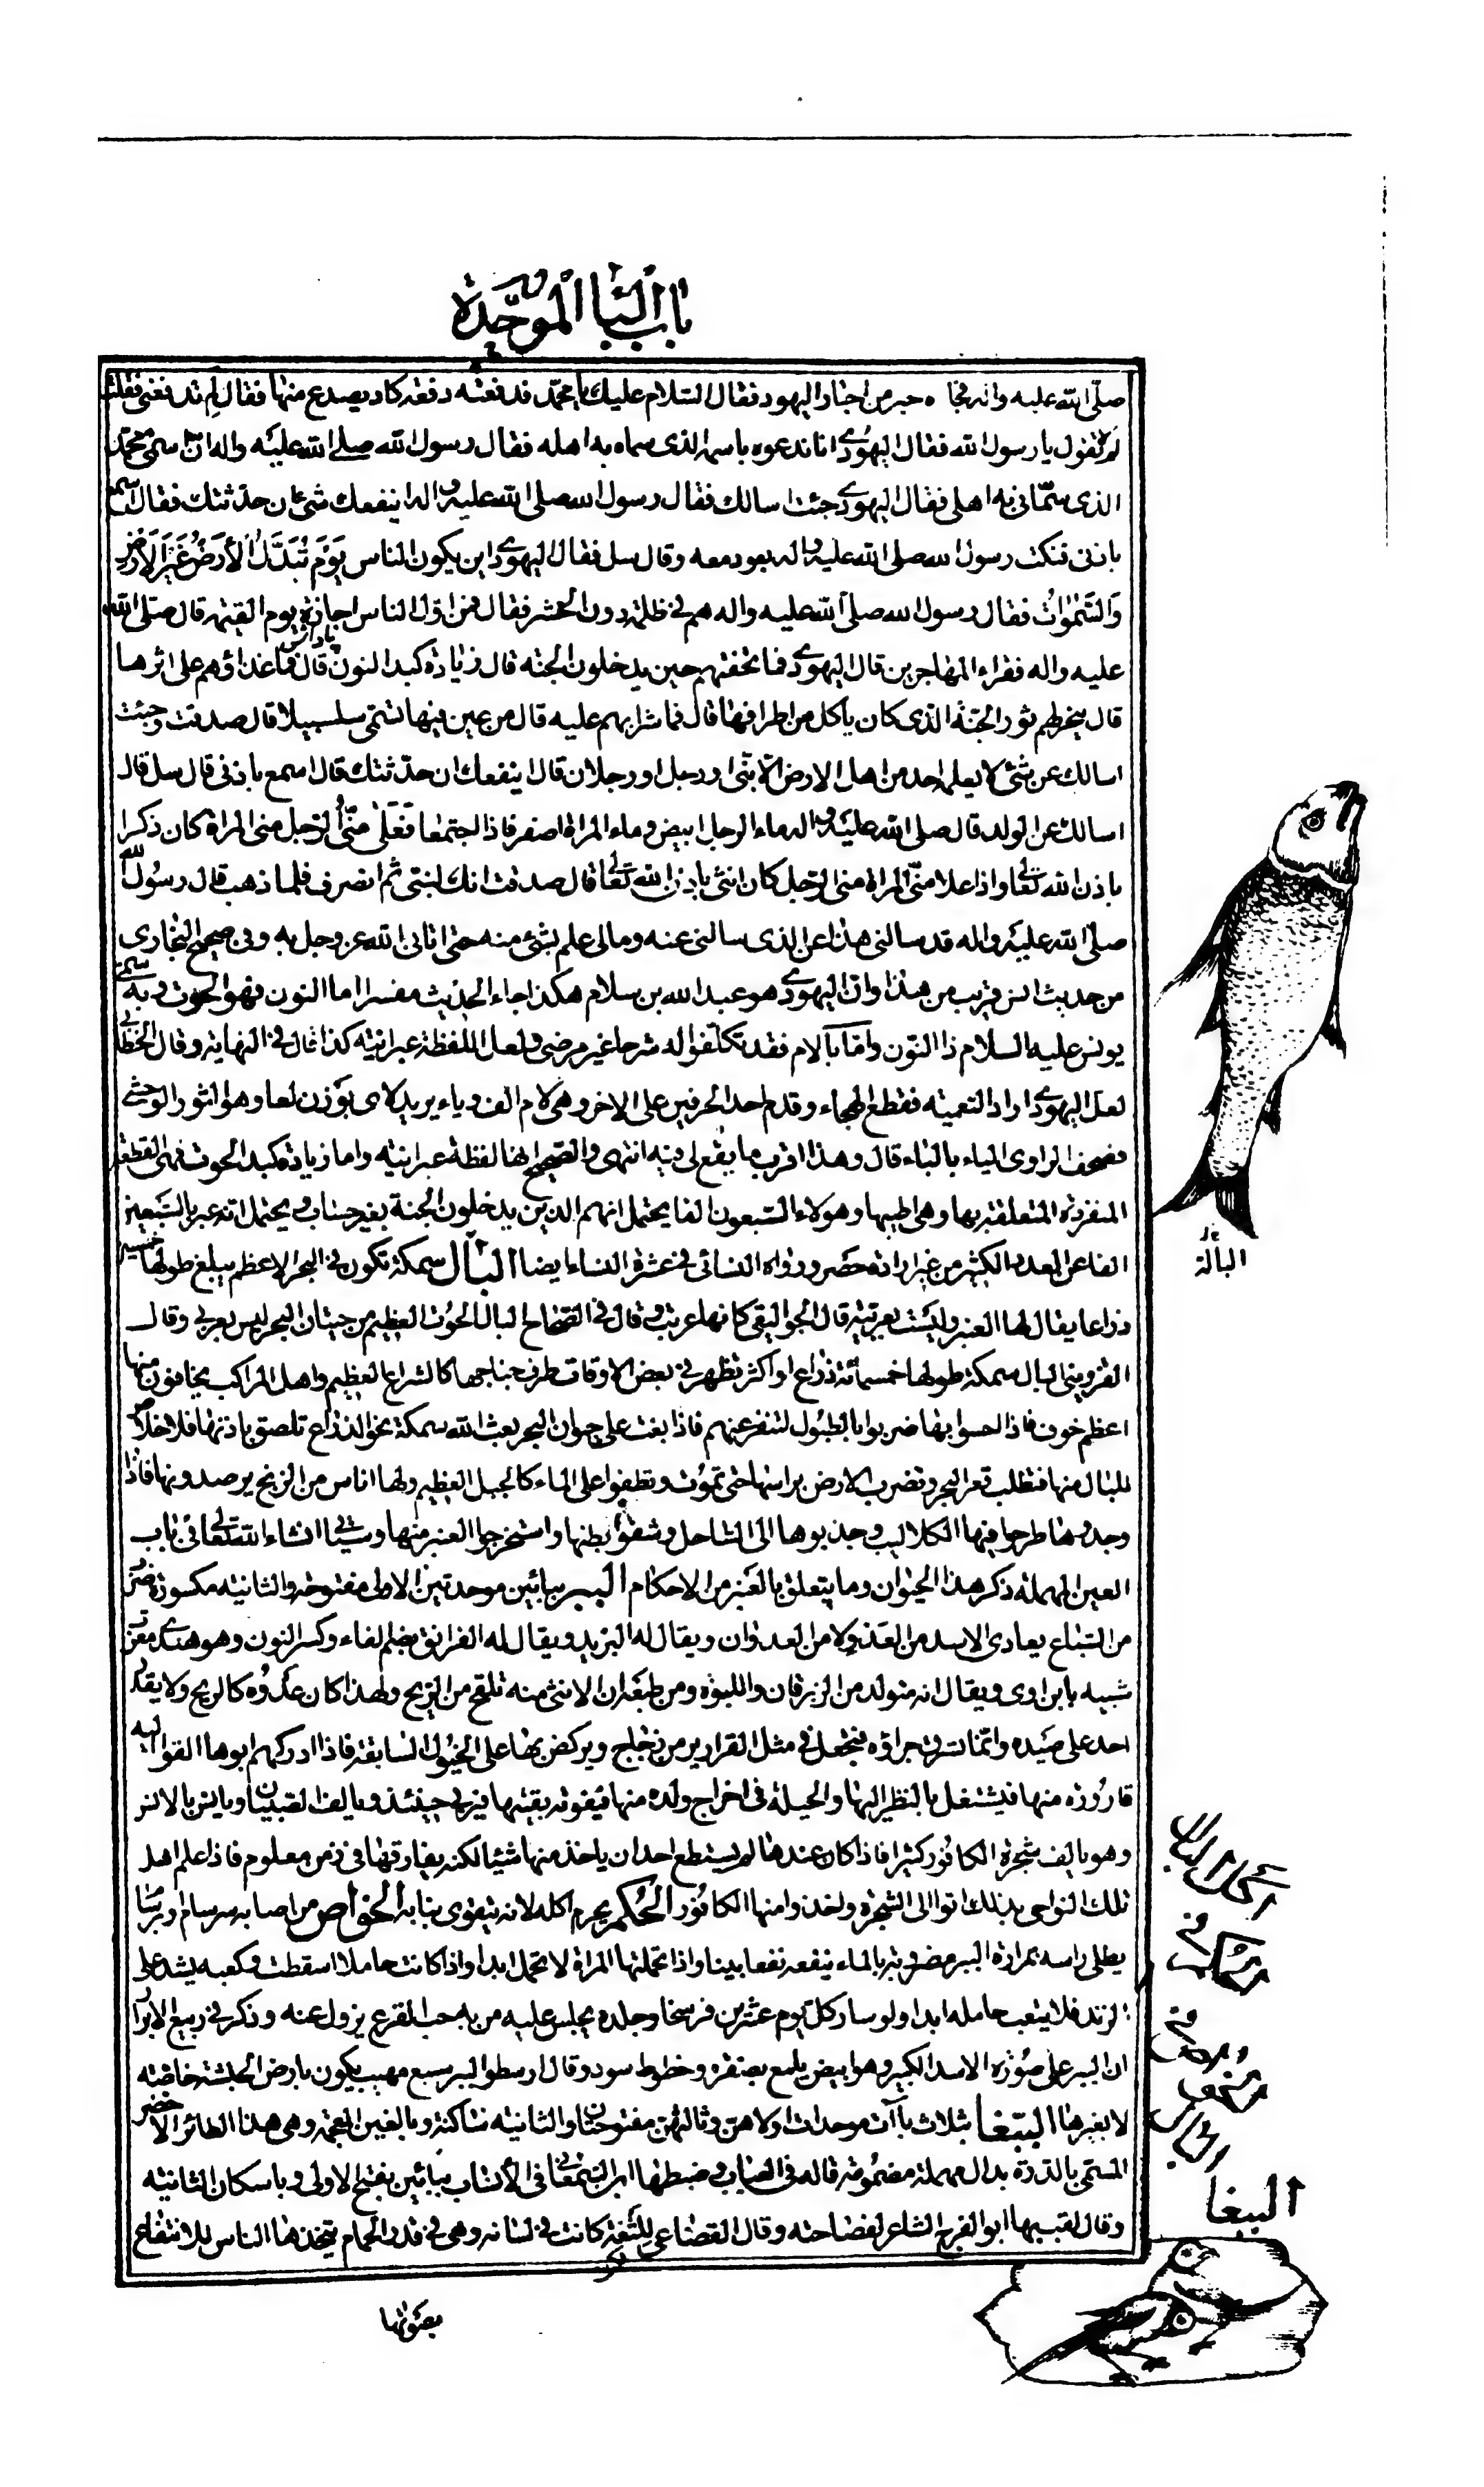 باب الباء الموحدة
صلى الله عليه واله فجاءه حبر من احبار اليهود فقال السلام عليك يا محمد فدفعته دفعة كاد يصدع منها فقال لم تدفعنى فقلت
لم لا تقول يا رسول الله فقال اليهودى انا ندعوه باسمه الذى سماه به اهله فقال رسول الله صلى الله عليه واله ان اسمى محمد
الذى سمّانى به اهلى فقال اليهودى جئت اسالك فقال رسول الله صلى الله عليه واله اينفعك شئ ان حدثتك فقال اسمع
باذنى فنكت رسول الله صلى الله عليه واله بعود معه وقال سل فقال اليهودى اين يكون الناس يَوْمَ تُبَدَّلُ الْأَرْضُ غَيْرَ الْأَرْضِ
وَالسَّمٰوَاتُ فقال رسول الله صلى الله عليه واله هم فى ظلمة دون الحشر فقال فمن اوّل الناس اجازة يوم القيمة قال صلى الله
عليه واله فقراء المهاجرين قال اليهودى فما تحفتهم حين يدخلون الجنة قال زيادة كبد النون قال فما غداؤهم على اثرها
قال ينحر لهم ثور الجنة الذى كان ياكل من اطرافها قال فما شرابهم عليه قال من عين فيها تسمى سلسبيلا قال صدقت وجئت
اسالك عن شئ لا يعلمه احد من اهل الارض الا نبى او رجل او رجلان قال اينفعك ان حدثتك قال اسمع باذنى قال سل قال
اسالك عن الولد قال صلى الله عليه واله ماء الرجل ابيض وماء المراة اصفر فاذا اجتمعا فعلى منىّ الرجل منى المراة كان ذكرا
باذن الله تعالى واذا علا منىّ المراة منى الرجل كان انثى باذن الله تعالى قال صدقت انك لنبى ثم انصرف فلما ذهب قال رسول الله
صلى الله عليه واله قد سالنى هذا عن الذى سالنى عنه ومالى علم بشئ منه حتى اتانى الله عز وجل به وفى صحيح البخارى
من حديث انس قريب من هذا وان اليهودى هو عبد الله بن سلام هكذا جاء الحديث مفسرا اما النون فهو الحوت وبه سمى
يونس عليه السلام ذا النون واما بالام فقد تكلفوا له شرحا غير مرضى ولعل اللفظة عبرانية كذا قال فى النهاية وقال الخطابى
لعل اليهودى اراد التعمية فقطع الهجاء وقدم احد الحرفين على الاخر وهى لام الف وياء يريد لاى بوزن لعا وهو الثور الوحشى
فصحف الراوى الياء بالباء قال وهذا اقرب ما يقع لى فيه انتهى والصحيح انها لفظة عبرانية واما زيادة كبد الحوت فهى القطعة
المنفردة المتعلقة بها وهى اطيبها وهولاء السبعون الفا يحتمل انهم الذين يدخلون الجنة بغير حساب ويحتمل انه عبر بالسبعين
الفا عن العدد الكثير من غير ارادة حصر ورواه النسائى فى عشرة النساء ايضا البال سمكة تكون فى البحر الاعظم يبلغ طولها خمسين
ذراعا يقال لها العنبر وليست بعربية قال الجواليقى كانها عربت وقال فى الصحاح البال الحوت العظيم من حيتان البحر ليس بعربى وقال
القزوينى البال سمكة طولها خمسمائة ذراع او اكثر تظهر فى بعض الاوقات طرف جناحها كالشراع العظيم واهل المراكب يخافون منها
اعظم خوف فاذا احسوا بها ضربوا بالطبول لتنفر عنهم فاذا بغت على حيوان البحر بعث الله سمكة نحو الذراع تلصق باذنها فلا خلاص
للبال منها فتطلب قعر البحر وتضرب الارض براسها حتى تموت وتطفوا على الماء كالجبل العظيم ولها اناس من الزنج يرصدونها فاذا
وجدوها طرحوا فيها الكلاليب وجذبوها الى الساحل وشقوا بطنها واستخرجوا العنبر منها وسياتى انشاء الله تعالى فى باب
العين المهملة ذكر هذا الحيوان وما يتعلق بالعنبر من الاحكام الببر ببائين موحدتين الاولى مفتوحة والثانية مكسورة ضرب
من السباع يعادى الاسد من العدو لا من العدوان ويقال له البريد ويقال له الفرانق بضم الفاء وكسر النون وهو هندى معرب
شبيه بابن اوى ويقال انه متولد من الزبرقان واللبوة ومن طبعه ان الانثى منه تلقح من الريح ولهذا كان عدوه كالريح ولا يقدر
احد على صيده وانما تسرق جراؤه فتجعل فى مثل القوارير من زجاج ويركض بها على الخيول السابقة فاذا ادركهم ابوها القوا اليه
قارورة منها فيشتغل بالنظر اليها والحيلة فى اخراج ولده منها فيفوته بقيتها فيربى حينئذ ويالف الصبيان ويانس بالانس
وهو يالف شجرة الكافور كثيرا فاذا كان عندها لم يستطع احد ان ياخذ منها شيئا لكنه يفارقها فى زمن معلوم فاذا علم اهل
تلك النواحى بذلك اتوا الى الشجرة واخذوا منها الكافور الحكم يحرم اكله لانه يتقوى بنابه الخواص من اصابه سرسام او برسام
يطلى راسه بمرارة الببر مضروبة بالماء ينفعه نفعا بينا واذا تحملتها المراة لا تحمل ابدا واذا كانت حاملا اسقطت وكعبه يشد على
الزند فلا يتعب حامله ابدا ولو سار كل يوم عشرين فرسخا وجلده يجلس عليه من به حب القرع يزول عنه وذكر فى ربيع الابرار
ان الببر على صورة الاسد الكبير وهو ابيض يلمع بصفرة وخطوط سود وقال ارسطو الببر سبع مهيب يكون بارض الحبشة خاصة
لا بغيرها الببغا بثلاث باآت موحدات اولاهن وثالثهن مفتوحتان والثانية ساكنة وبالغين المعجمة وهى هذا الطائر الاخضر
المسمى بالدرة بدال مهملة مضمومة قاله فى العباب وضبطها ابن السمعانى فى الأنساب ببائين بفتح الاولى وباسكان الثانية
وقال لقب بها ابو الفرج الشاعر لفصاحته وقال القضاعى للثغة كانت فى لسانه وهى فى قدر الحمام يتخذها الناس للانتفاع
بصوتها
البالة
الببغا